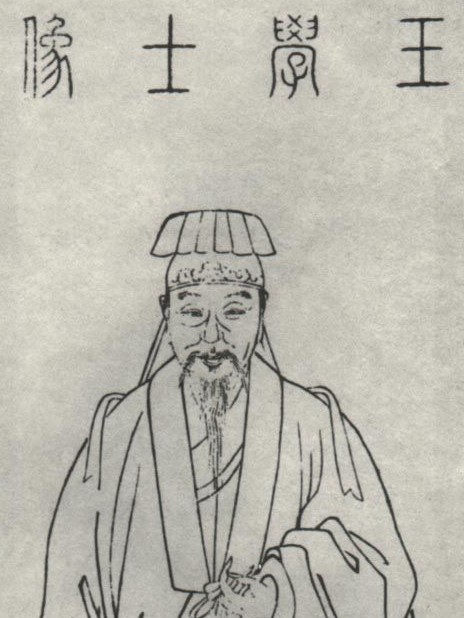 王學士像